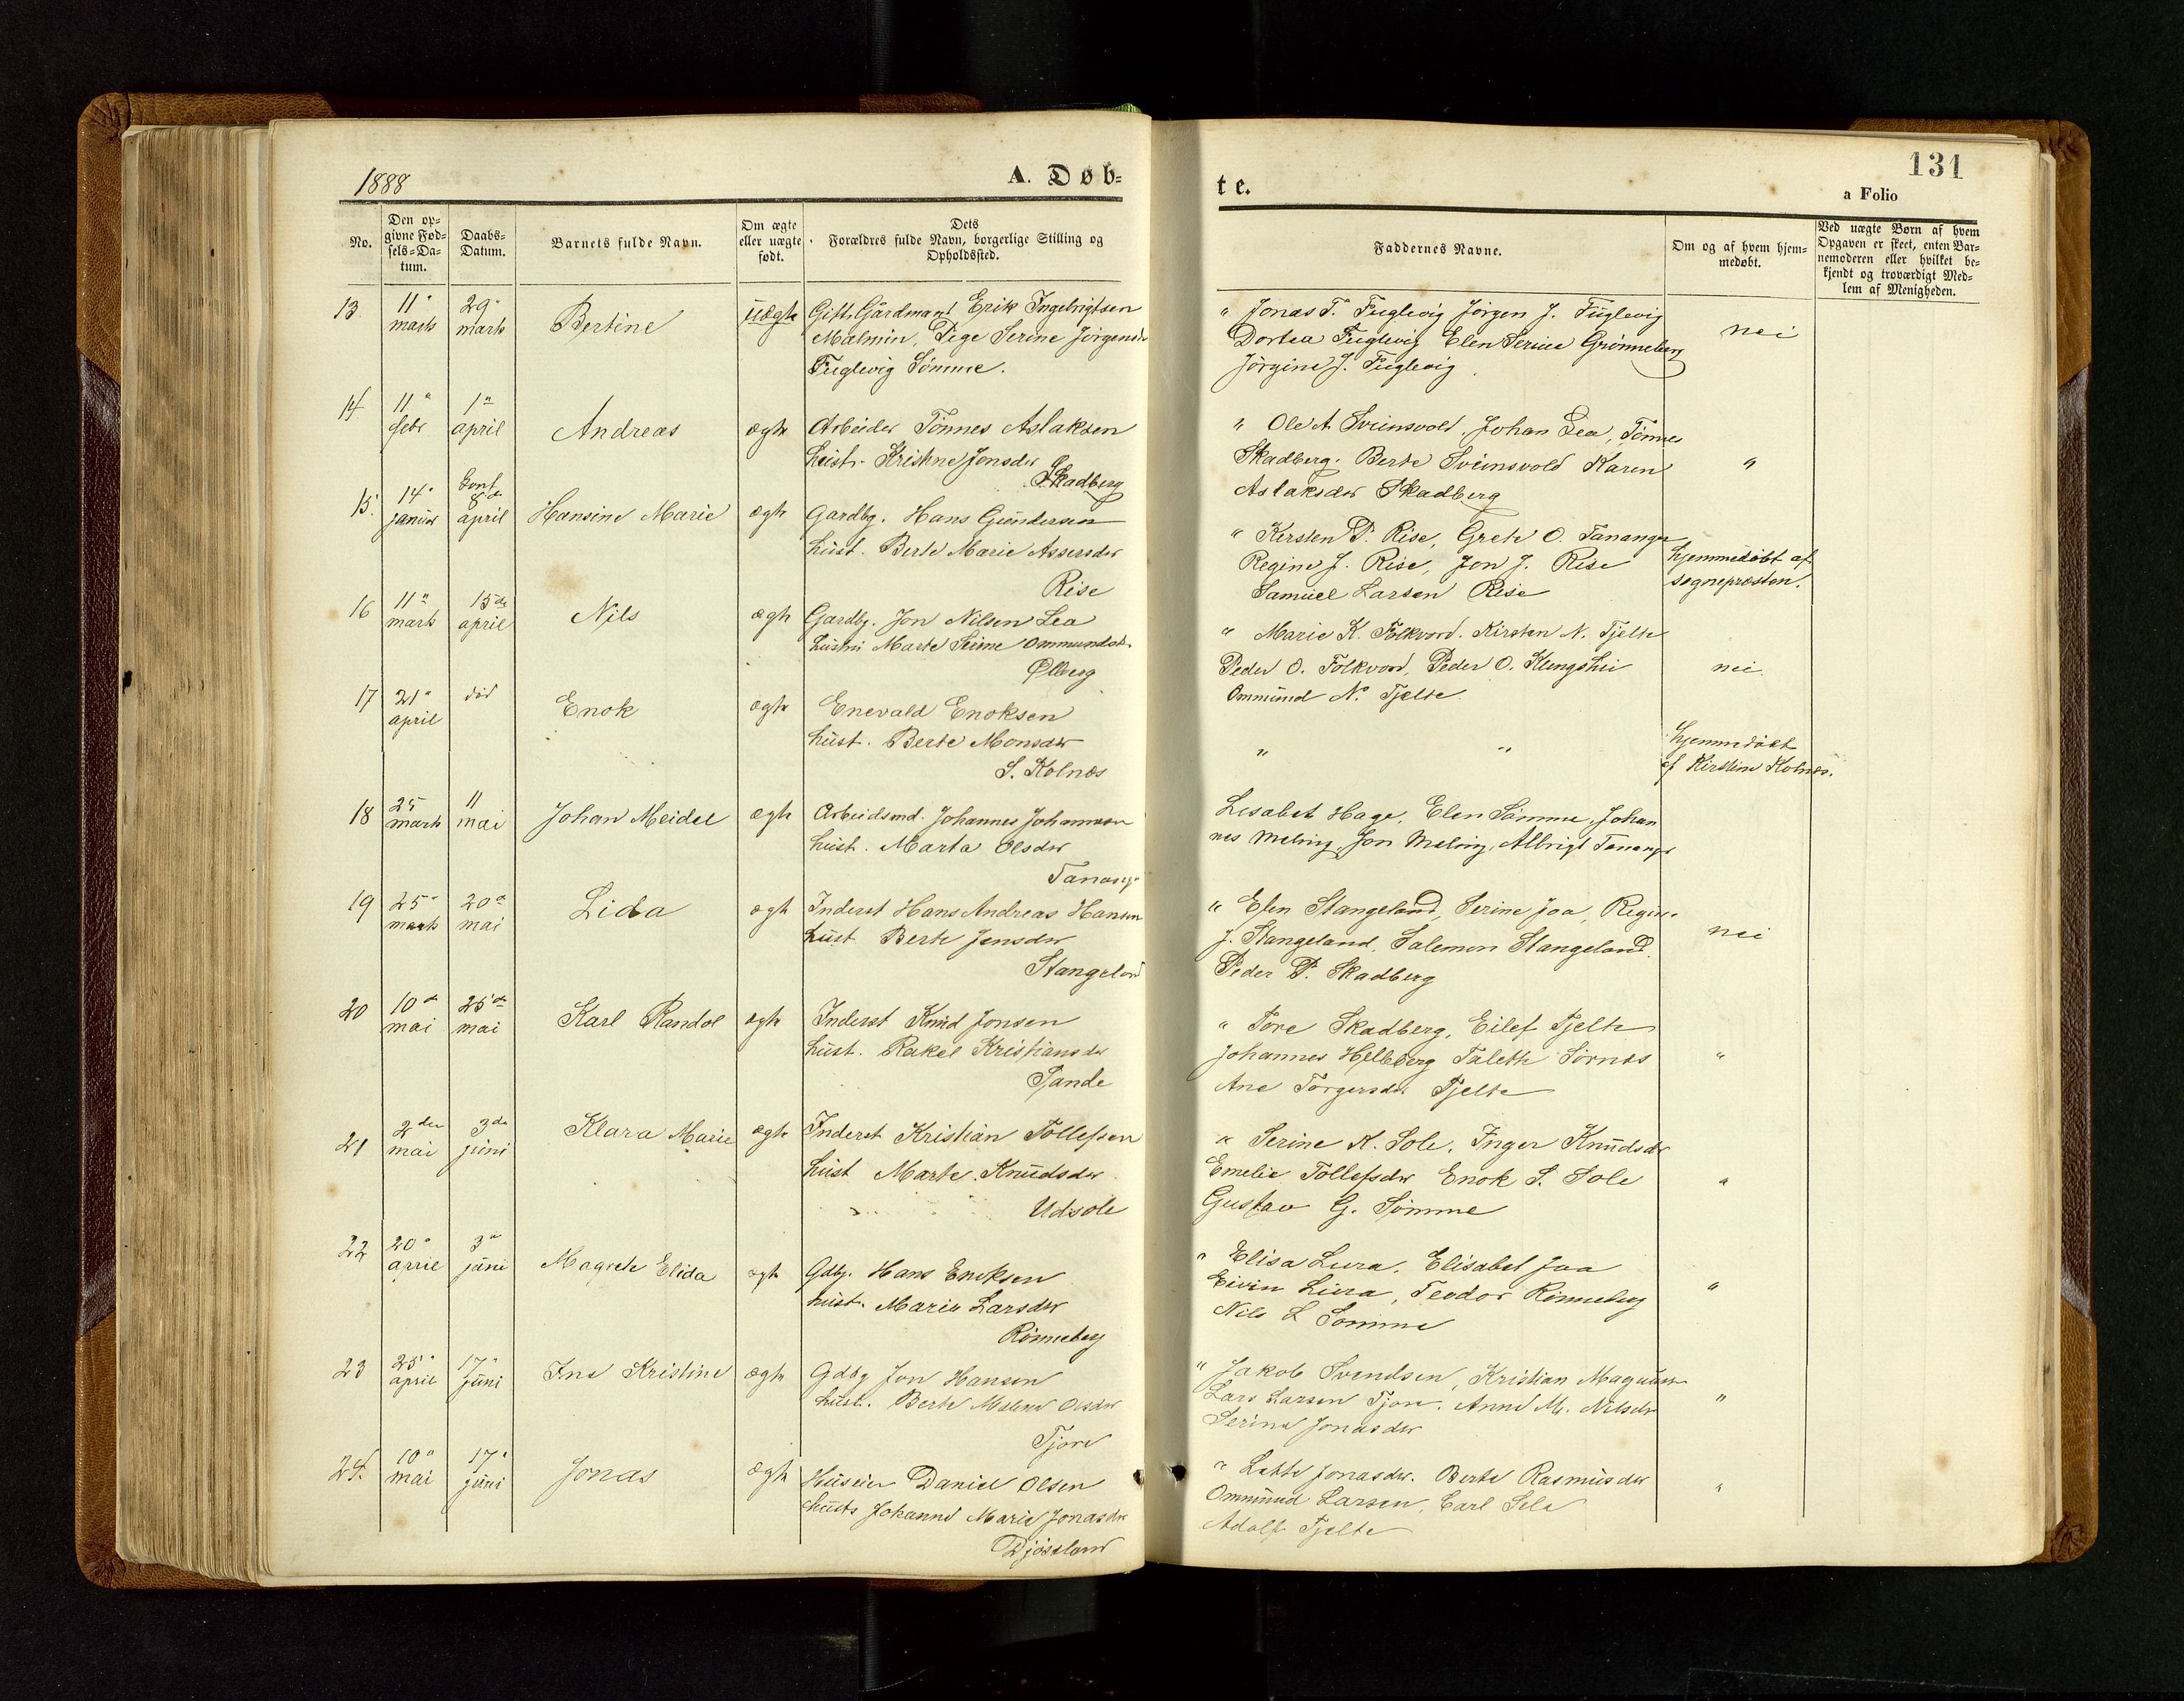 1888
A. Døb-
No.
Den op-
givne Fød-
sels-Da-
tum.
Daabs-
Datum.
Barnets fulde Navn.
Om ægte
eller uægte
født.
Dets
Forældres fulde Navn, borgerlige Stilling og
Opholdssted.
13 11" marts 29" marts Bertine uægte Gift Gårdmand Erik Ingebrigtsen
Malmin, Pige Serine Jörgensdr
Fuglevig Sömme.
14 11" febr 1" april Andreas ægte Arbeider Tönnes Aslaksen
hust. Kristine Jonsdr
Skadberg
15. 14" januar 8de april Hansine Marie ægte Gardbg. Hans Gundersen
hust. Berte Marie Assersdr
Rise
16 11" marts 15de april Nils ægte Gardbg. Jon Nilsen Lea
hustru Marte Serine Ommundsdr.
Ølberg
17 21" april död Enok ægte Enevald Enoksen
hust. Berte Monsdr
S. Kolnæs
18 25 marts 11 mai Johan Meidel ægte Arbeidsmd. Johannes Johannesen
hust. Marta Olsdr
Tananger
19 25" marts 20de mai Lida ægte Inderst Hans Andreas Hansen
hust Berte Jensdr
Stangeland
20 10de mai 25de mai Karl Randol ægte Inderst Knud Jonsen
hust. Rakel Kristiansdr
Sande
21 2den mai 3de juni Klara Marie ægte Inderst Kristian Tollefsen
hust Marte Knudsdr
Udsole
22 20" april 3" juni Magrete Elida ægte Gdbg. Hans Enoksen
hust. Marie Larsdr
Rönneberg
23 25" april 17" juni Ine Kristine ægte Gdbg Jon Hansen
hust. Berte Malene Olsdr
Tjore
24. 10" mai 17" juni Jonas ægte Huseier Daniel Olsen
hust Johanne Marie Jonasdr
Djösland
te.
131
a Folio
Faddernes Navne.
Om og af hvem hjem-
medøbt.
Ved uægte Børn af hvem
Opgaven er skeet, enten Bar-
nemoderen eller hvilket be-
kjendt og troværdigt Med-
lem af Menigheden.
" Jonas T. Fuglevig Jörgen J. Fuglevig
Dortea Fuglevig Elen Serine Grönneberg nei
Jörgine J. Fuglevig
" Ole A Sveinsvold, Johan Lea, Tönnes
Skadberg. Berte Sveinsvold Karen "
Aslaksdr Skadberg
" Kirsten P. Rise, Grete O. Tananger
Regine J. Rise, Jon J. Rise hjemmedöbt af
Samuel Larsen Rise sognepræsten.
" Marie K. Folkvord. Kirsten N. Tjelte
Peder O. Folkvord, Peder O. Klungshei nei
Ommund N. Tjelte
" " hjemmedöbt
af Kirstine Kolnæs.
Lisabet Hage, Elen Sömme, Johan
nes Meling, Jon Meling, Albrigt Tananger
" Elen Stangeland, Serine Joa, Regine
J. Stangeland, Salemon Stangeland nei
Peder P. Skadberg
" Tore Skadberg, Eilef Tjelte
Johannes Helleberg Talette Sörnæs "
Ane Torgersdr Tjelte
" Serine K. Sole. Inger Knudsdr
Emelie Tollefsdr Enok S. Sole "
Gustav G. Sömme
" Elisa Lura. Elisabet Joa
Eivin Lura, Teodor Rönneberg "
Nils L Sömme
" Jakob Svendsen, Kristian Magnusen
Lars Larsen Tjore. Anne M. Nilsdr "
Serine Jonasdr
" Lette Jonasdr. Berte Rasmusdr
Ommund Larsen, Carl Sele "
Adolf Tjelte